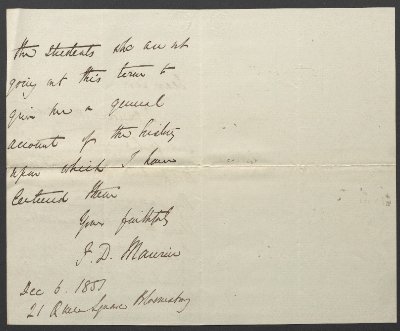 the students who are not
going out this term to
give me a general
account of the history
upon which I have
lectured them
Yours faithfully
F. D. Maurice
Dec 6. 1851
21 Queen Square Bloomsbury